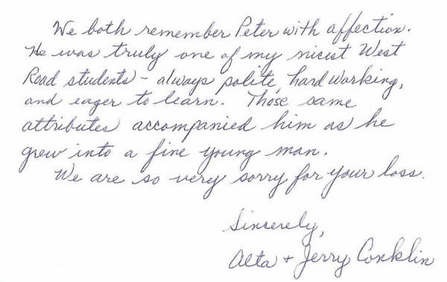 We both remember Peter with affection.
He was truly one of my nicest West
Road students - always polite, hard working,
and eager to learn. Those same
attributes accompanied him as he
grew into a fine young man.
We are so very sorry for your loss.
Sincerely,
Alta + Jerry Conklin